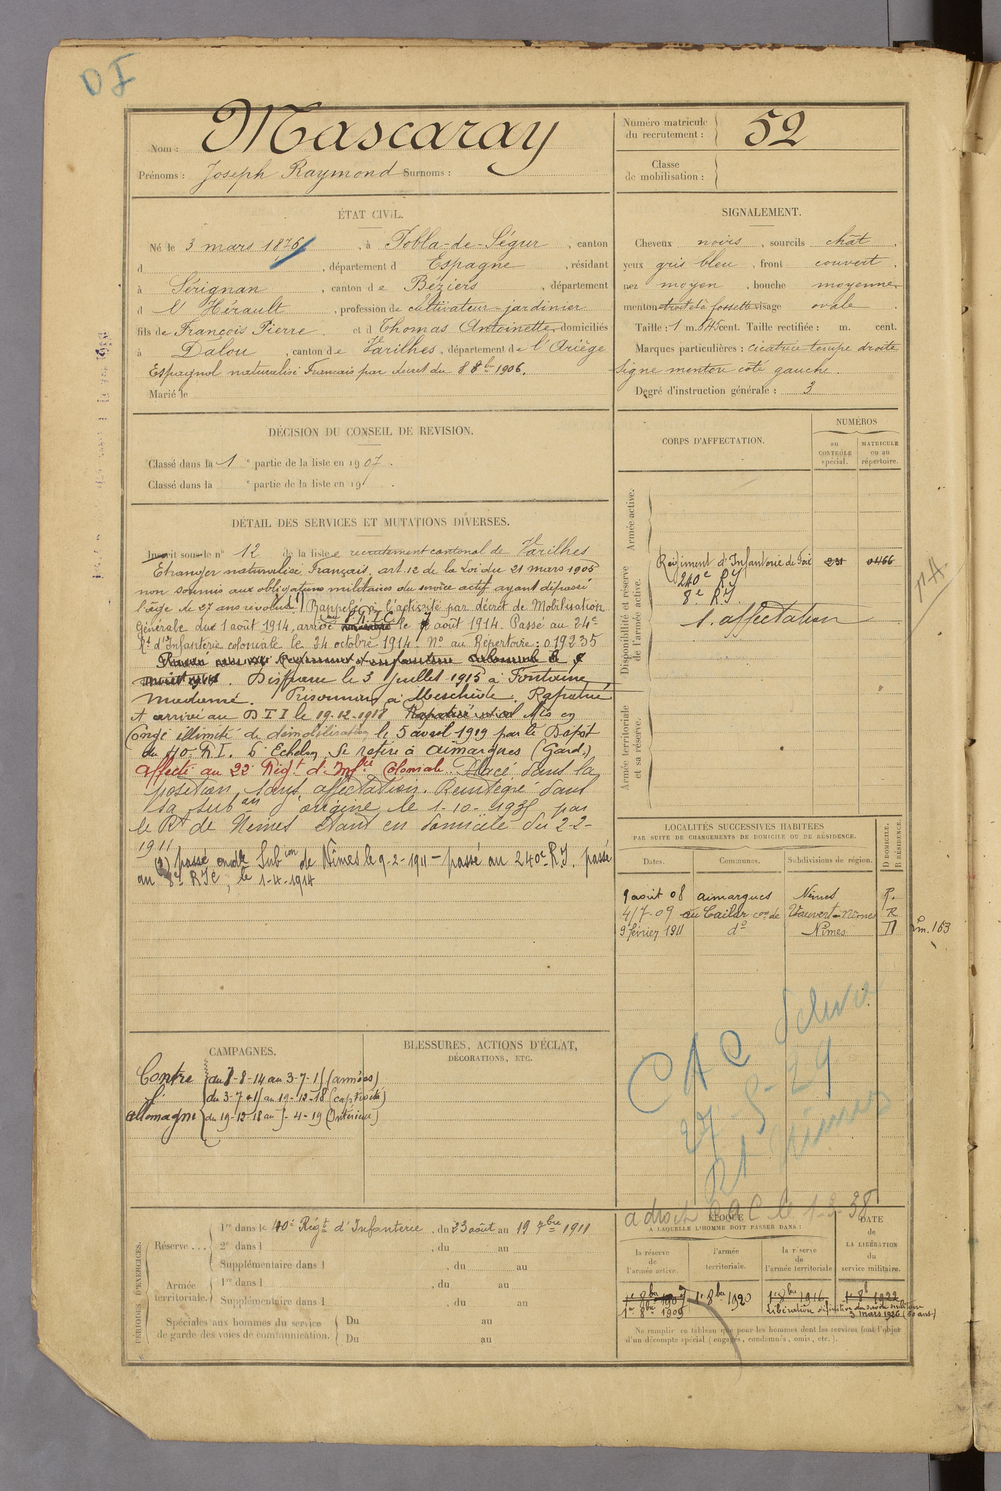 OI
Nom : Mascaray
Prénoms : Joseph Raymond Surnoms :
Numéro matricule du recrutement : 52
Classe de mobilisation :
ÉTAT CIVIL.
Né le 3 mars 1876, à Pobla-de-Ségur, canton
d , département d Espagne, résidant
à Sérignan, canton de Béziers, département
d l'Hérault, profession de cultivateur-jardinier
fils de François Pierre et d Thomas Antoinette, domiciliés
à Dalou, canton de Varilhes, département de l'Ariège
Espagnol naturalisé Français par décret du 8 8bre 1906.
Marié le
SIGNALEMENT.
Cheveux noirs, sourcils chât.
yeux gris bleu, front couvert.
nez moyen, bouche moyenne,
menton à fossette visage ovale.
Taille : 1 m. 545 cent. Taille rectifiée : m. cent.
Marques particulières : cicatrice tempe droite
signe menton côté gauche.
Degré d'instruction générale : 3
DÉCISION DU CONSEIL DE REVISION.
Classé dans la 1e partie de la liste en 1907.
Classé dans la e partie de la liste en 191 .
CORPS D'AFFECTATION.
NUMÉROS
au CONTRÔLE spécial.
MATRICULE ou au répertoire.
Armée active.
Disponibilité et réserve de l'armée active.
Régiment d'Infanterie de Foix 231 0466
240e RI
8e RI
S. affectation
Armée territoriale et sa réserve.
DÉTAIL DES SERVICES ET MUTATIONS DIVERSES.
Inscrit sous le n° 12 de la liste recrutement cantonal de Varilhes
Etranger naturalisé Français, art. 12 de la Loi du 21 mars 1905
non soumis aux obligations militaires du service actif ayant dépassé
l'âge de 27 ans révolus (1) Rappelé à l'activité par décret de Mobilisation
Générale du 1 août 1914, arrivé au 8e R.I.C. le 7 août 1914. Passé au 24e
Rt d'Infanterie coloniale le 24 octobre 1914. No au Répertoire : 019235
Disparu le 3 juillet 1915 à Fontaine
Madame. Prisonnier à Meschède. Rapatrié
et arrivé au D I I le 19.12.1918 Mis en
Congé illimité de démobilisation le 5 avril 1919 par le Dépôt
du 40e R.I. 6e Echelon, Se retire à Aimargues (Gard),
affecté au 22e Régt d'Infie Coloniale. Placé dans la
position sans affectation. Réintégré dans
sa subon d'origine le 1-10-1935 par
le Rt de Nimes étant en domicile du 2-2-
1911
(2) passé en dle Subion de Nîmes le 9-2-1911 – passé au 240e R.I. passé
au 8e RIC, le 1-4-1914
LOCALITÉS SUCCESSIVES HABITÉES
PAR SUITE DE CHANGEMENTS DE DOMICILE OU DE RÉSIDENCE.
Dates. Communes. Subdivisions de région. D DOMICILE. R RÉSIDENCE.
9 août 08 Aimargues Nîmes R.
4/7-09 au Cailar con de Vauvert-Nîmes R
9 février 1911 do Nîmes D
m. 163
CAC
27-5-29
Rt Nimes
CAMPAGNES.
Contre l'Allemagne
du 7-8-14 au 3-7-15 (armées)
du 3-7-15 au 19-12-18 (captivité)
du 19-12-18 au 5-4-19 (Intérieur)
BLESSURES, ACTIONS D'ÉCLAT,
DÉCORATIONS, ETC.
PÉRIODES D'EXERCICES.
Réserve . . .
1re dans le 40e Régt d'Infanterie, du 23 août au 19 7bre 1911
2e dans l , du au
Supplémentaire dans l , du au
Armée territoriale.
1re dans l , du au
Supplémentaire dans l , du au
Spéciales aux hommes du service de garde des voies de communication.
Du au
Du au
a droit CAC le 1-3-38
ÉPOQUE
À LAQUELLE L'HOMME DOIT PASSER DANS :
DATE de LA LIBÉRATION du service militaire.
la réserve de l'armée active. l'armée territoriale. la réserve de l'armée territoriale
1er 8bre 1907 1er 8bre 1920 1er 8bre 1916 1er 8bre 1922
1er 8bre 1909 Libération définitive du service militaire 3 mars 1926 (50 ans)
Ne remplir ce tableau que pour les hommes dont les services font l'objet
d'un décompte spécial (engagés, condamnés, omis, etc.).